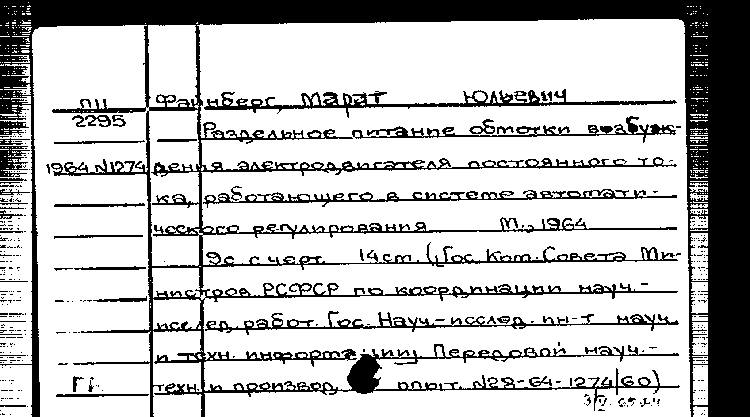 ПП Файнберг, Марат Юльевич
2295 Раздельное питание обмотки возбуж-
1964 N1274 дения электродвигателя постоянного то-
ка, работающего в системе автомати-
ческого регулирования М., 1964
9с с черт. 14см. (Гос. Ком. Совета Ми-
нистров РСФСР по координации науч.-
исслед. работ. Гос. Науч.-исслед. ин-т науч.
и техн. информации. Передовой науч.-
техн. и производ. опыт. N28-64-1274/60)